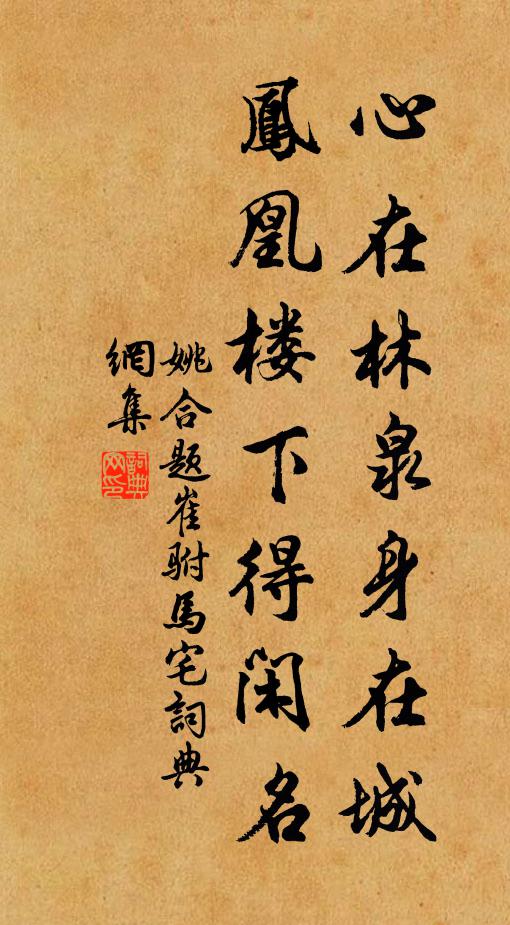 心在林泉身在城
鳳凰楼下得闲名
姚合題崔駙馬宅詞典
網集
詞典
網印